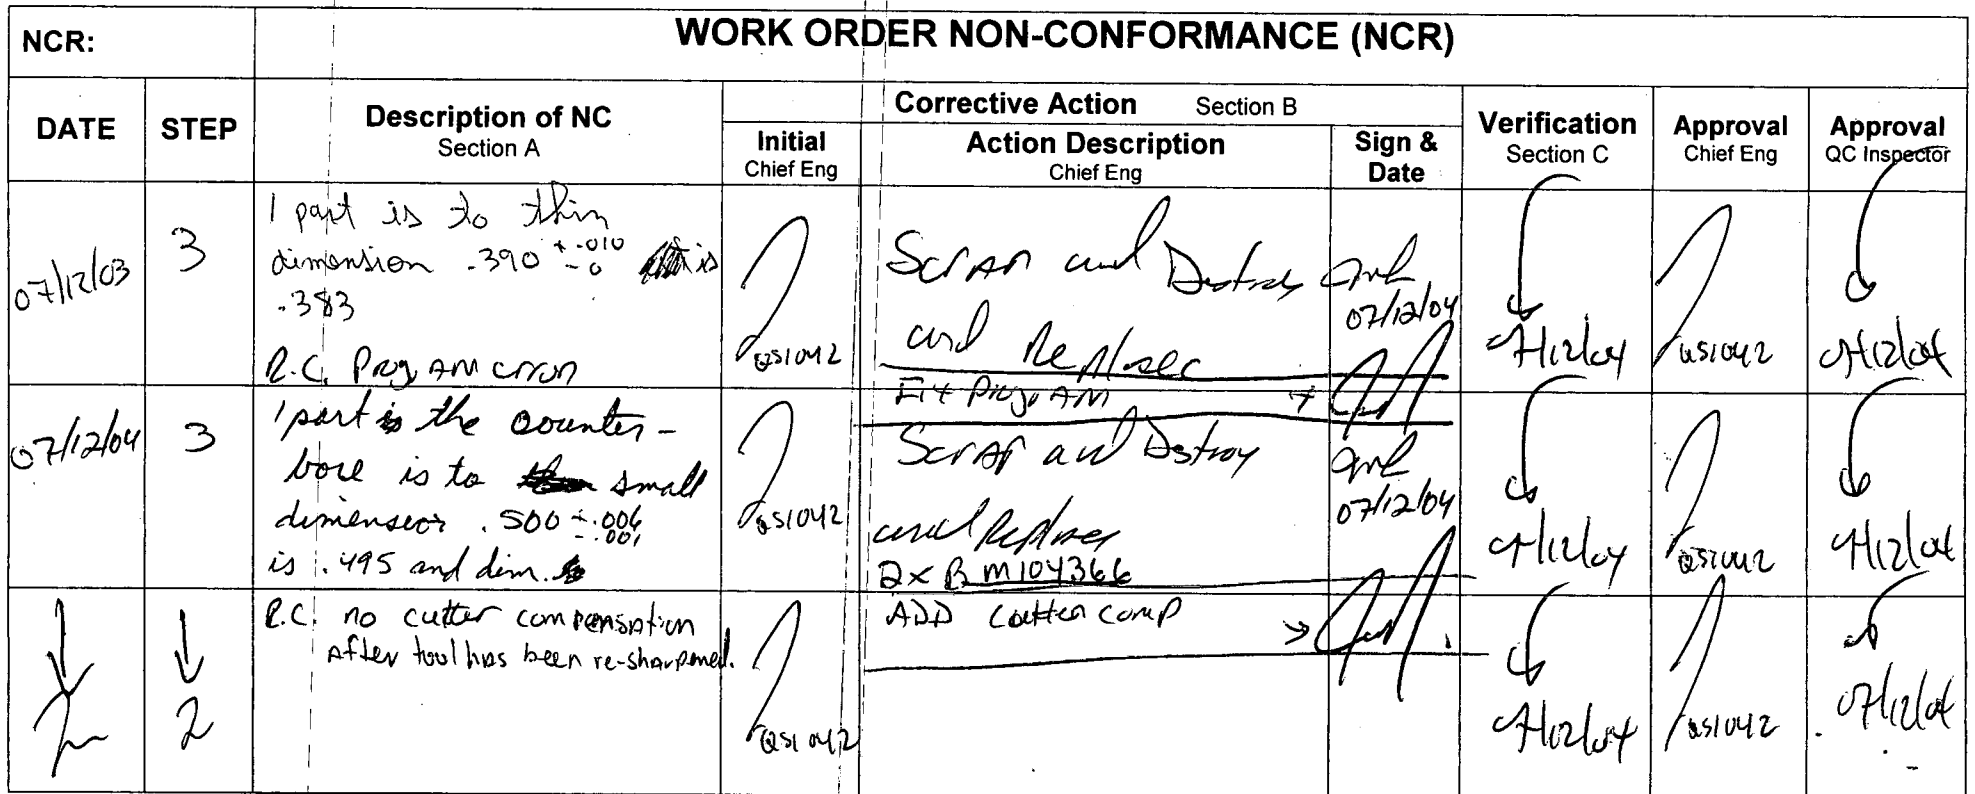 NCR:
WORK ORDER NON-CONFORMANCE (NCR)
DATE
STEP
Description of NC
Section A
Corrective Action Section B
Initial
Chief Eng
Action Description
Chief Eng
Sign &
Date
Verification
Section C
Approval
Chief Eng
Approval
QC Inspector
07/12/03
3
1 part is to thin
dimension .390 +.010 -0 is
.383
R.C. Program error
QS1042
Scrap and Destroy
and Replace
Fix Program
07/12/04
07/12/04
QS1042
07/12/04
07/12/04
3
1 part is the counter-
bore is to small
dimension .500 +.006 -.001
is .495 and dim.
QS1042
Scrap and Dstroy
and Replace
2x B M104366
07/12/04
07/12/04
QS1042
07/12/04
2
R.C. no cutter compensation
after tool has been re-sharpened.
QS1042
ADD cutter comp
07/12/04
QS1042
07/12/04